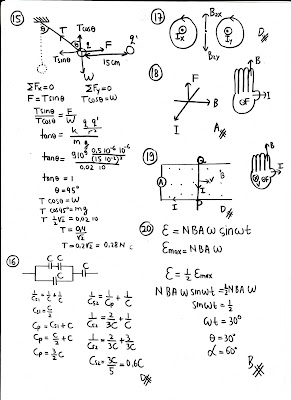 15
θ T Tcosθ F q q'
Tsinθ 15cm
W
ΣFx=0 ΣFy=0
F=Tsinθ Tcosθ=W
Tsinθ/Tcosθ = F/W
tanθ = k q q'/r² / m g
tanθ = 9.10⁹ 0,5.10⁻⁶ 10⁻⁶/(15.10⁻²)² / 0,02.10
tanθ = 1
θ=45°
T cosθ = W
T cos45° = mg
T ½√2 = 0,02.10
T = 0,4/√2
T = 0,2√2 = 0,28N
16
C C
C C
1/Cs1 = 1/C + 1/C
Cs1 = C/2
Cp = Cs1 + C
Cp = C/2 + C
Cp = 3/2 C
1/Cs2 = 1/Cp + 1/C
1/Cs2 = 2/3C + 1/C
1/Cs2 = 2/3C + 3/3C
Cs2 = 3C/5 = 0,6C
D
17
Ix Iy
D
18
F
B
I
A
B
I
GF
19
Q
A
I
P
D
B
I
GF
20
ε = NBAω sinωt
εmax = NBAω
ε = ½ εmax
NBAω sinωt = ½ NBAω
sinωt = ½
ωt = 30°
θ = 30°
α = 60°
B